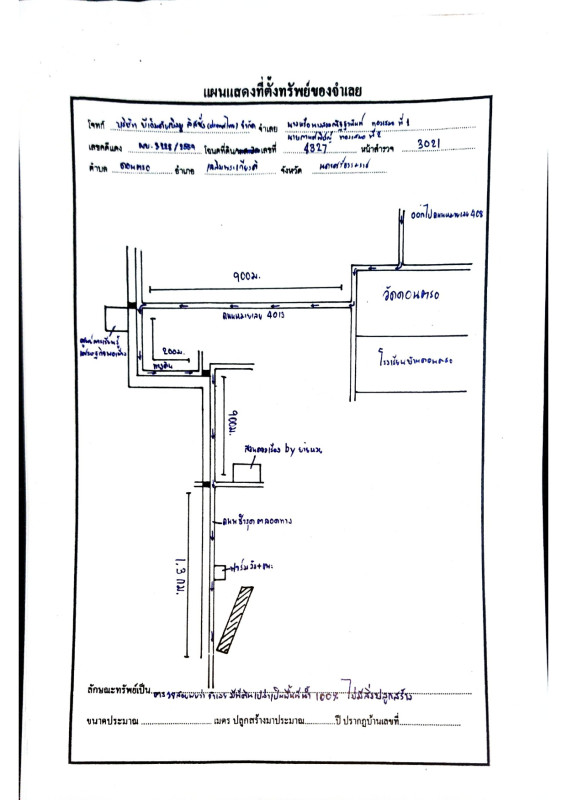 แผนแสดงที่ตั้งทรัพย์ของจำเลย
โจทก์ บริษัท จำกัด จำเลย ที่ 1
ที่ 2
เลขคดีแดง ผบ. 3228/2559 โฉนดที่ดินเลขที่ 4327 หน้าสำรวจ 3021
ตำบล ดอนตรอ อำเภอ เฉลิมพระเกียรติ จังหวัด นครศรีธรรมราช
ออกไปถนนหมายเลข 408
900ม.
วัดดอนตรอ
ถนนหมายเลข 4013
ศูนย์การเรียนรู้
เศรษฐกิจพอเพียง
200ม.
ทางดิน
โรงเรียนบ้านดอนตรอ
900ม.
by
ถนนชำรุดตลอดทาง
1.3 กม.
ฟาร์มวัว+แพะ
ลักษณะทรัพย์เป็น 100% ไม่มีสิ่งปลูกสร้าง
ขนาดประมาณ เมตร ปลูกสร้างมาประมาณ ปี ปรากฏบ้านเลขที่